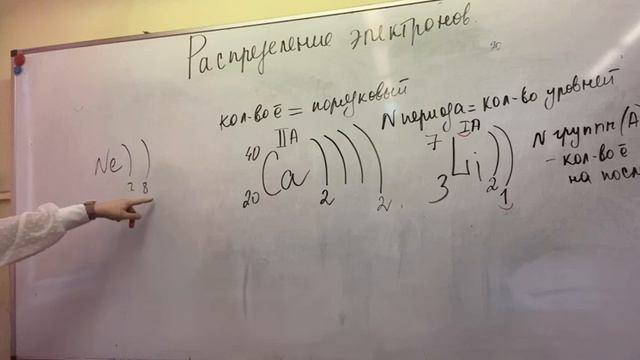 Распределение электронов.
кол-во ē = порядковый
N периода = кол-во уровней
N группы (А
- кол-во ē
на посл
Ne ) )
2 8
40 IIA
Ca ) ) ) )
20 2 2
7 IA
Li ) )
3 2 1